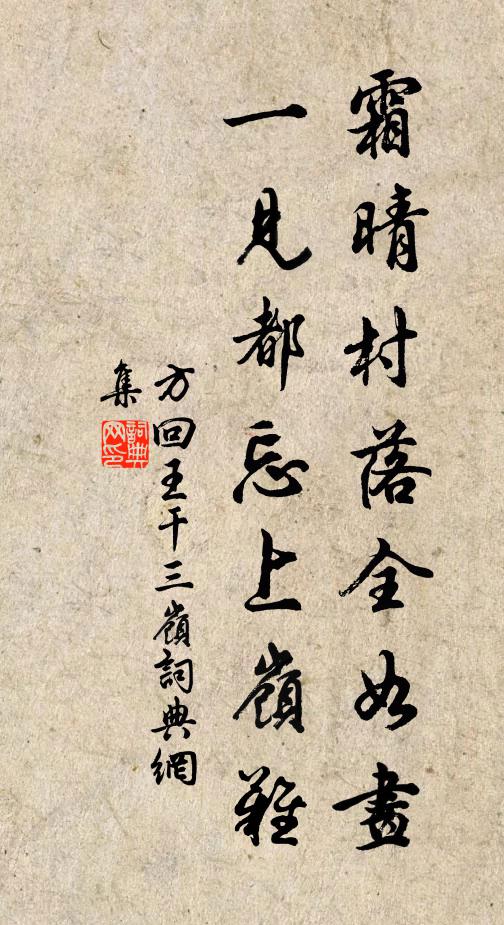 霜晴村落全如畫
一見都忘上嶺難
方回王干三嶺詞典網
集
詞典网印